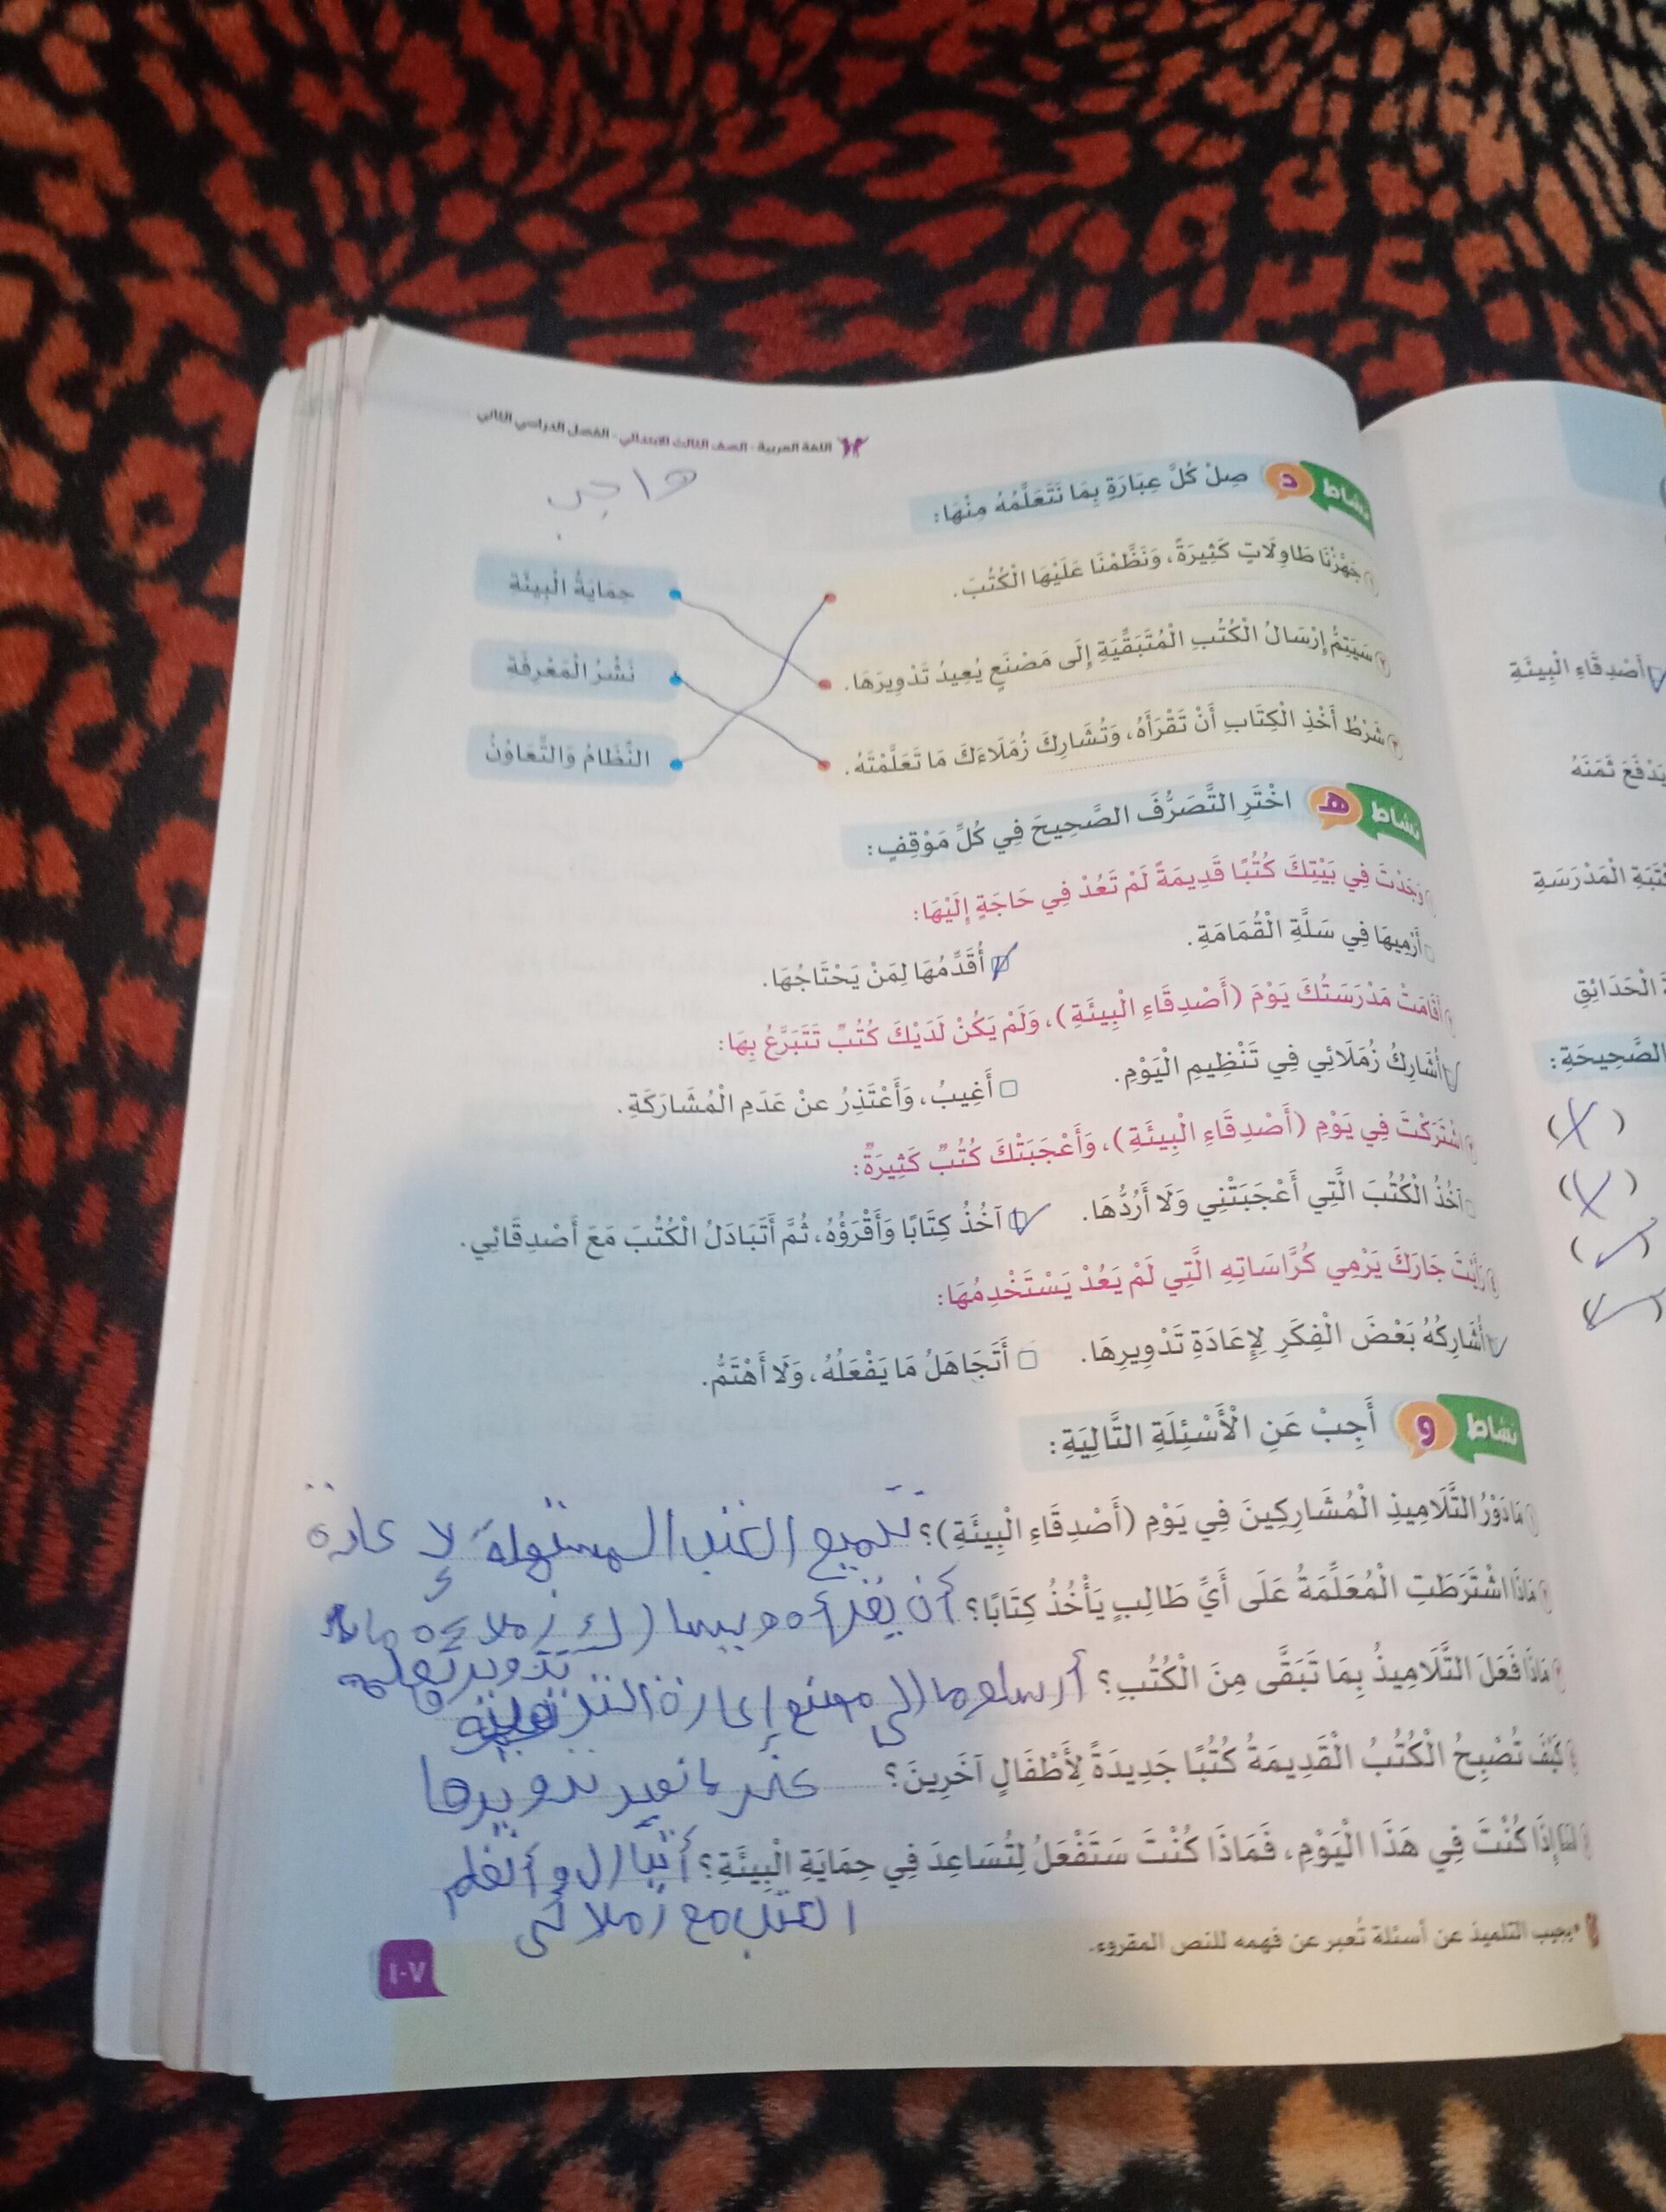 اللغة العربية - الصف الثالث الابتدائي - الفصل الدراسي الثاني
واجب
نشاط د صِلْ كُلَّ عِبَارَةٍ بِمَا نَتَعَلَّمُهُ مِنْهَا:
١ جَهَّزْنَا طَاوِلَاتٍ كَثِيرَةً، وَنَظَّمْنَا عَلَيْهَا الْكُتُبَ.
حِمَايَةُ الْبِيئَةِ
٢ سَيَتِمُّ إِرْسَالُ الْكُتُبِ الْمُتَبَقِّيَةِ إِلَى مَصْنَعٍ يُعِيدُ تَدْوِيرَهَا.
نَشْرُ الْمَعْرِفَةِ
٣ شَرْطُ أَخْذِ الْكِتَابِ أَنْ تَقْرَأَهُ، وَتُشَارِكَ زُمَلَاءَكَ مَا تَعَلَّمْتَهُ.
النِّظَامُ وَالتَّعَاوُنُ
نشاط هـ اخْتَرِ التَّصَرُّفَ الصَّحِيحَ فِي كُلِّ مَوْقِفٍ:
وَجَدْتَ فِي بَيْتِكَ كُتُبًا قَدِيمَةً لَمْ تَعُدْ فِي حَاجَةٍ إِلَيْهَا:
أَرْمِيهَا فِي سَلَّةِ الْقُمَامَةِ. أُقَدِّمُهَا لِمَنْ يَحْتَاجُهَا.
أَقَامَتْ مَدْرَسَتُكَ يَوْمَ (أَصْدِقَاءِ الْبِيئَةِ)، وَلَمْ يَكُنْ لَدَيْكَ كُتُبٌ تَتَبَرَّعُ بِهَا:
أُشَارِكُ زُمَلَائِي فِي تَنْظِيمِ الْيَوْمِ. أَغِيبُ، وَأَعْتَذِرُ عَنْ عَدَمِ الْمُشَارَكَةِ.
اشْتَرَكْتَ فِي يَوْمِ (أَصْدِقَاءِ الْبِيئَةِ)، وَأَعْجَبَتْكَ كُتُبٌ كَثِيرَةٌ:
آخُذُ الْكُتُبَ الَّتِي أَعْجَبَتْنِي وَلَا أَرُدُّهَا. آخُذُ كِتَابًا وَأَقْرَؤُهُ، ثُمَّ أَتَبَادَلُ الْكُتُبَ مَعَ أَصْدِقَائِي.
٤ رَأَيْتَ جَارَكَ يَرْمِي كُرَّاسَاتِهِ الَّتِي لَمْ يَعُدْ يَسْتَخْدِمُهَا:
أُشَارِكُهُ بَعْضَ الْفِكَرِ لِإِعَادَةِ تَدْوِيرِهَا. أَتَجَاهَلُ مَا يَفْعَلُهُ، وَلَا أَهْتَمُّ.
نشاط و أَجِبْ عَنِ الْأَسْئِلَةِ التَّالِيَةِ:
١ مَا دَوْرُ التَّلَامِيذِ الْمُشَارِكِينَ فِي يَوْمِ (أَصْدِقَاءِ الْبِيئَةِ)؟ تجميع الكتب المستعملة لإعادة
تدويرها
٢ مَاذَا اشْتَرَطَتِ الْمُعَلِّمَةُ عَلَى أَيِّ طَالِبٍ يَأْخُذُ كِتَابًا؟ أن يقرأه ويشارك زملاءه ما
تعلمه
٣ مَاذَا فَعَلَ التَّلَامِيذُ بِمَا تَبَقَّى مِنَ الْكُتُبِ؟ أرسلوها إلى مصنع إعادة التدوير
٤ كَيْفَ تُصْبِحُ الْكُتُبُ الْقَدِيمَةُ كُتُبًا جَدِيدَةً لِأَطْفَالٍ آخَرِينَ؟ عندما نعيد تدويرها
إِذَا كُنْتَ فِي هَذَا الْيَوْمِ، فَمَاذَا كُنْتَ سَتَفْعَلُ لِتُسَاعِدَ فِي حِمَايَةِ الْبِيئَةِ؟ أتبادل وأنظم
الكتب مع زملائي
• يجيب التلميذ عن أسئلة تُعبر عن فهمه للنص المقروء.
١٠٧
أَصْدِقَاءِ الْبِيئَةِ
يَدْفَعَ ثَمَنَهُ
الْمَدْرَسَةِ
الْحَدَائِقِ
الصَّحِيحَةِ:
(✗)
(✗)
(✓)
(✓)